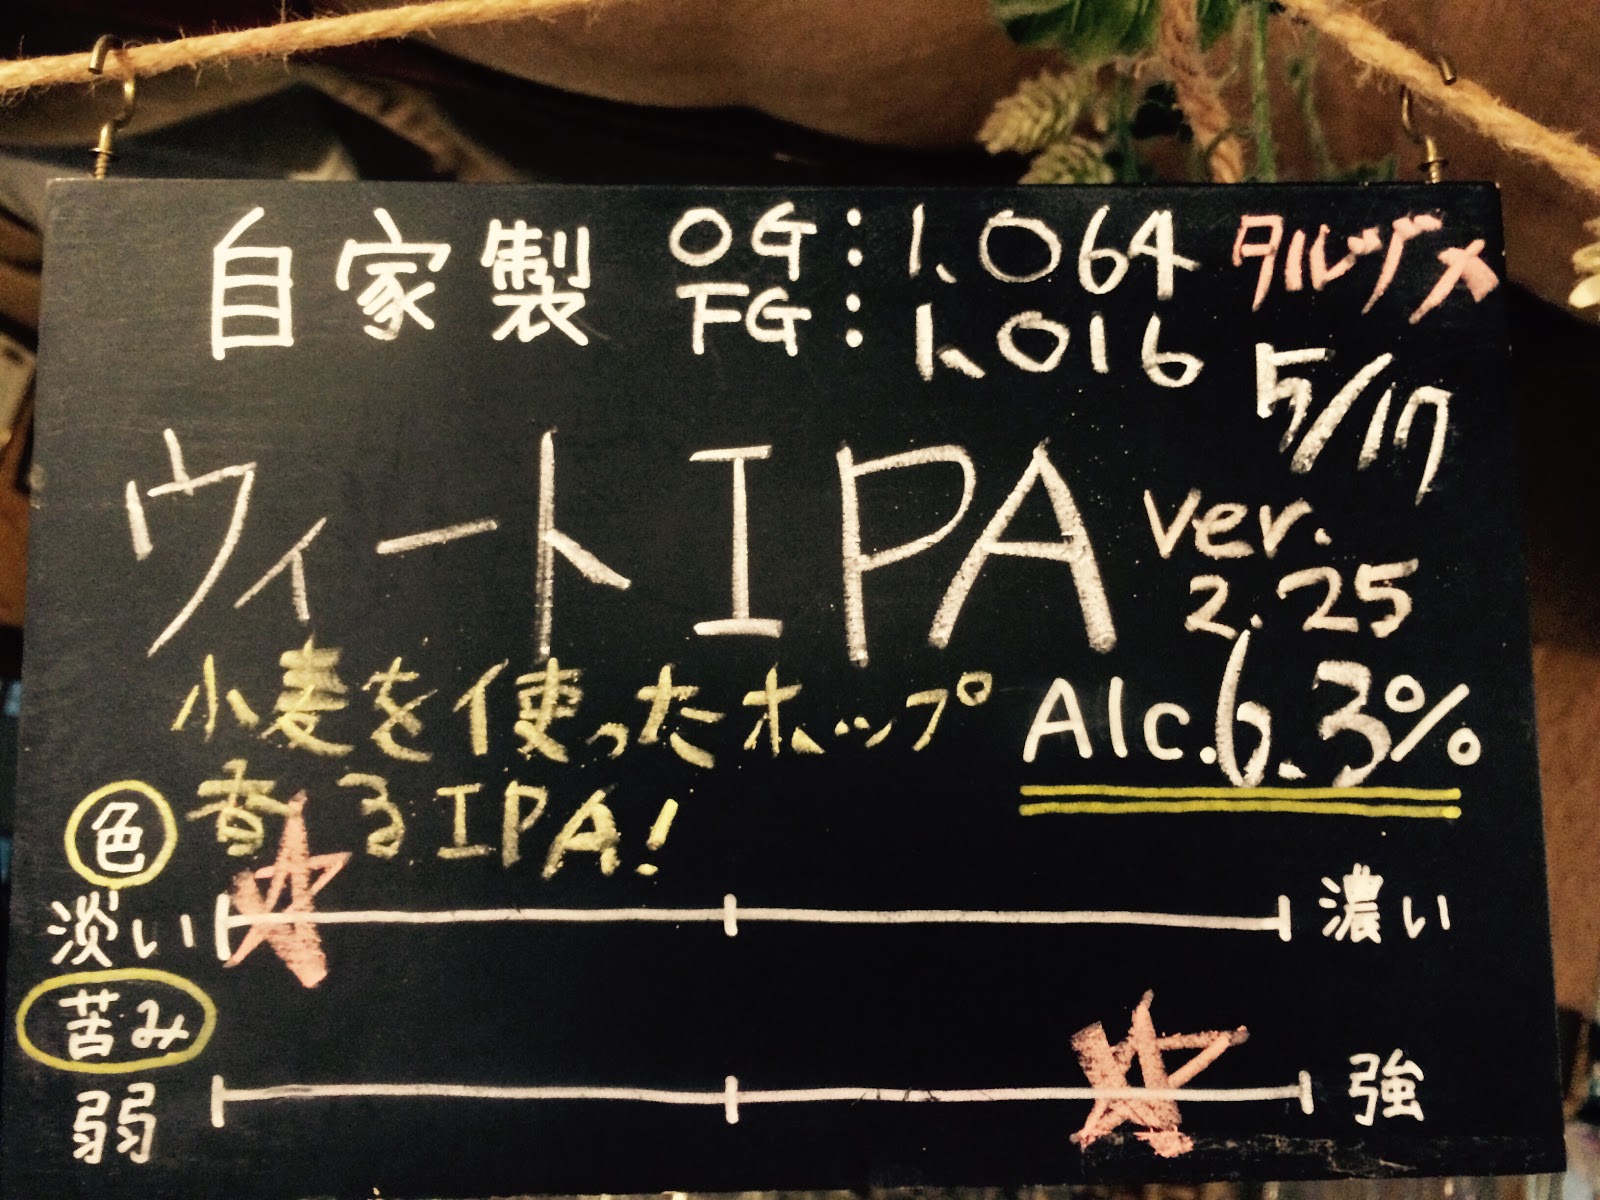 自家製 OG:1.064 タルヅメ
FG:1.016 5/17
ウィートIPA ver. 2.25
小麦を使ったホップ
香るIPA!
Alc.6.3%
色
淡い 濃い
苦み
弱 強